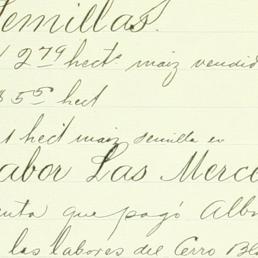 Semillas.
279 hect.s maiz vendid
$5 55 hect
1 hect maiz semilla en
abor Las Merc
enta que pagó Alb
las labores del Cerro Bl